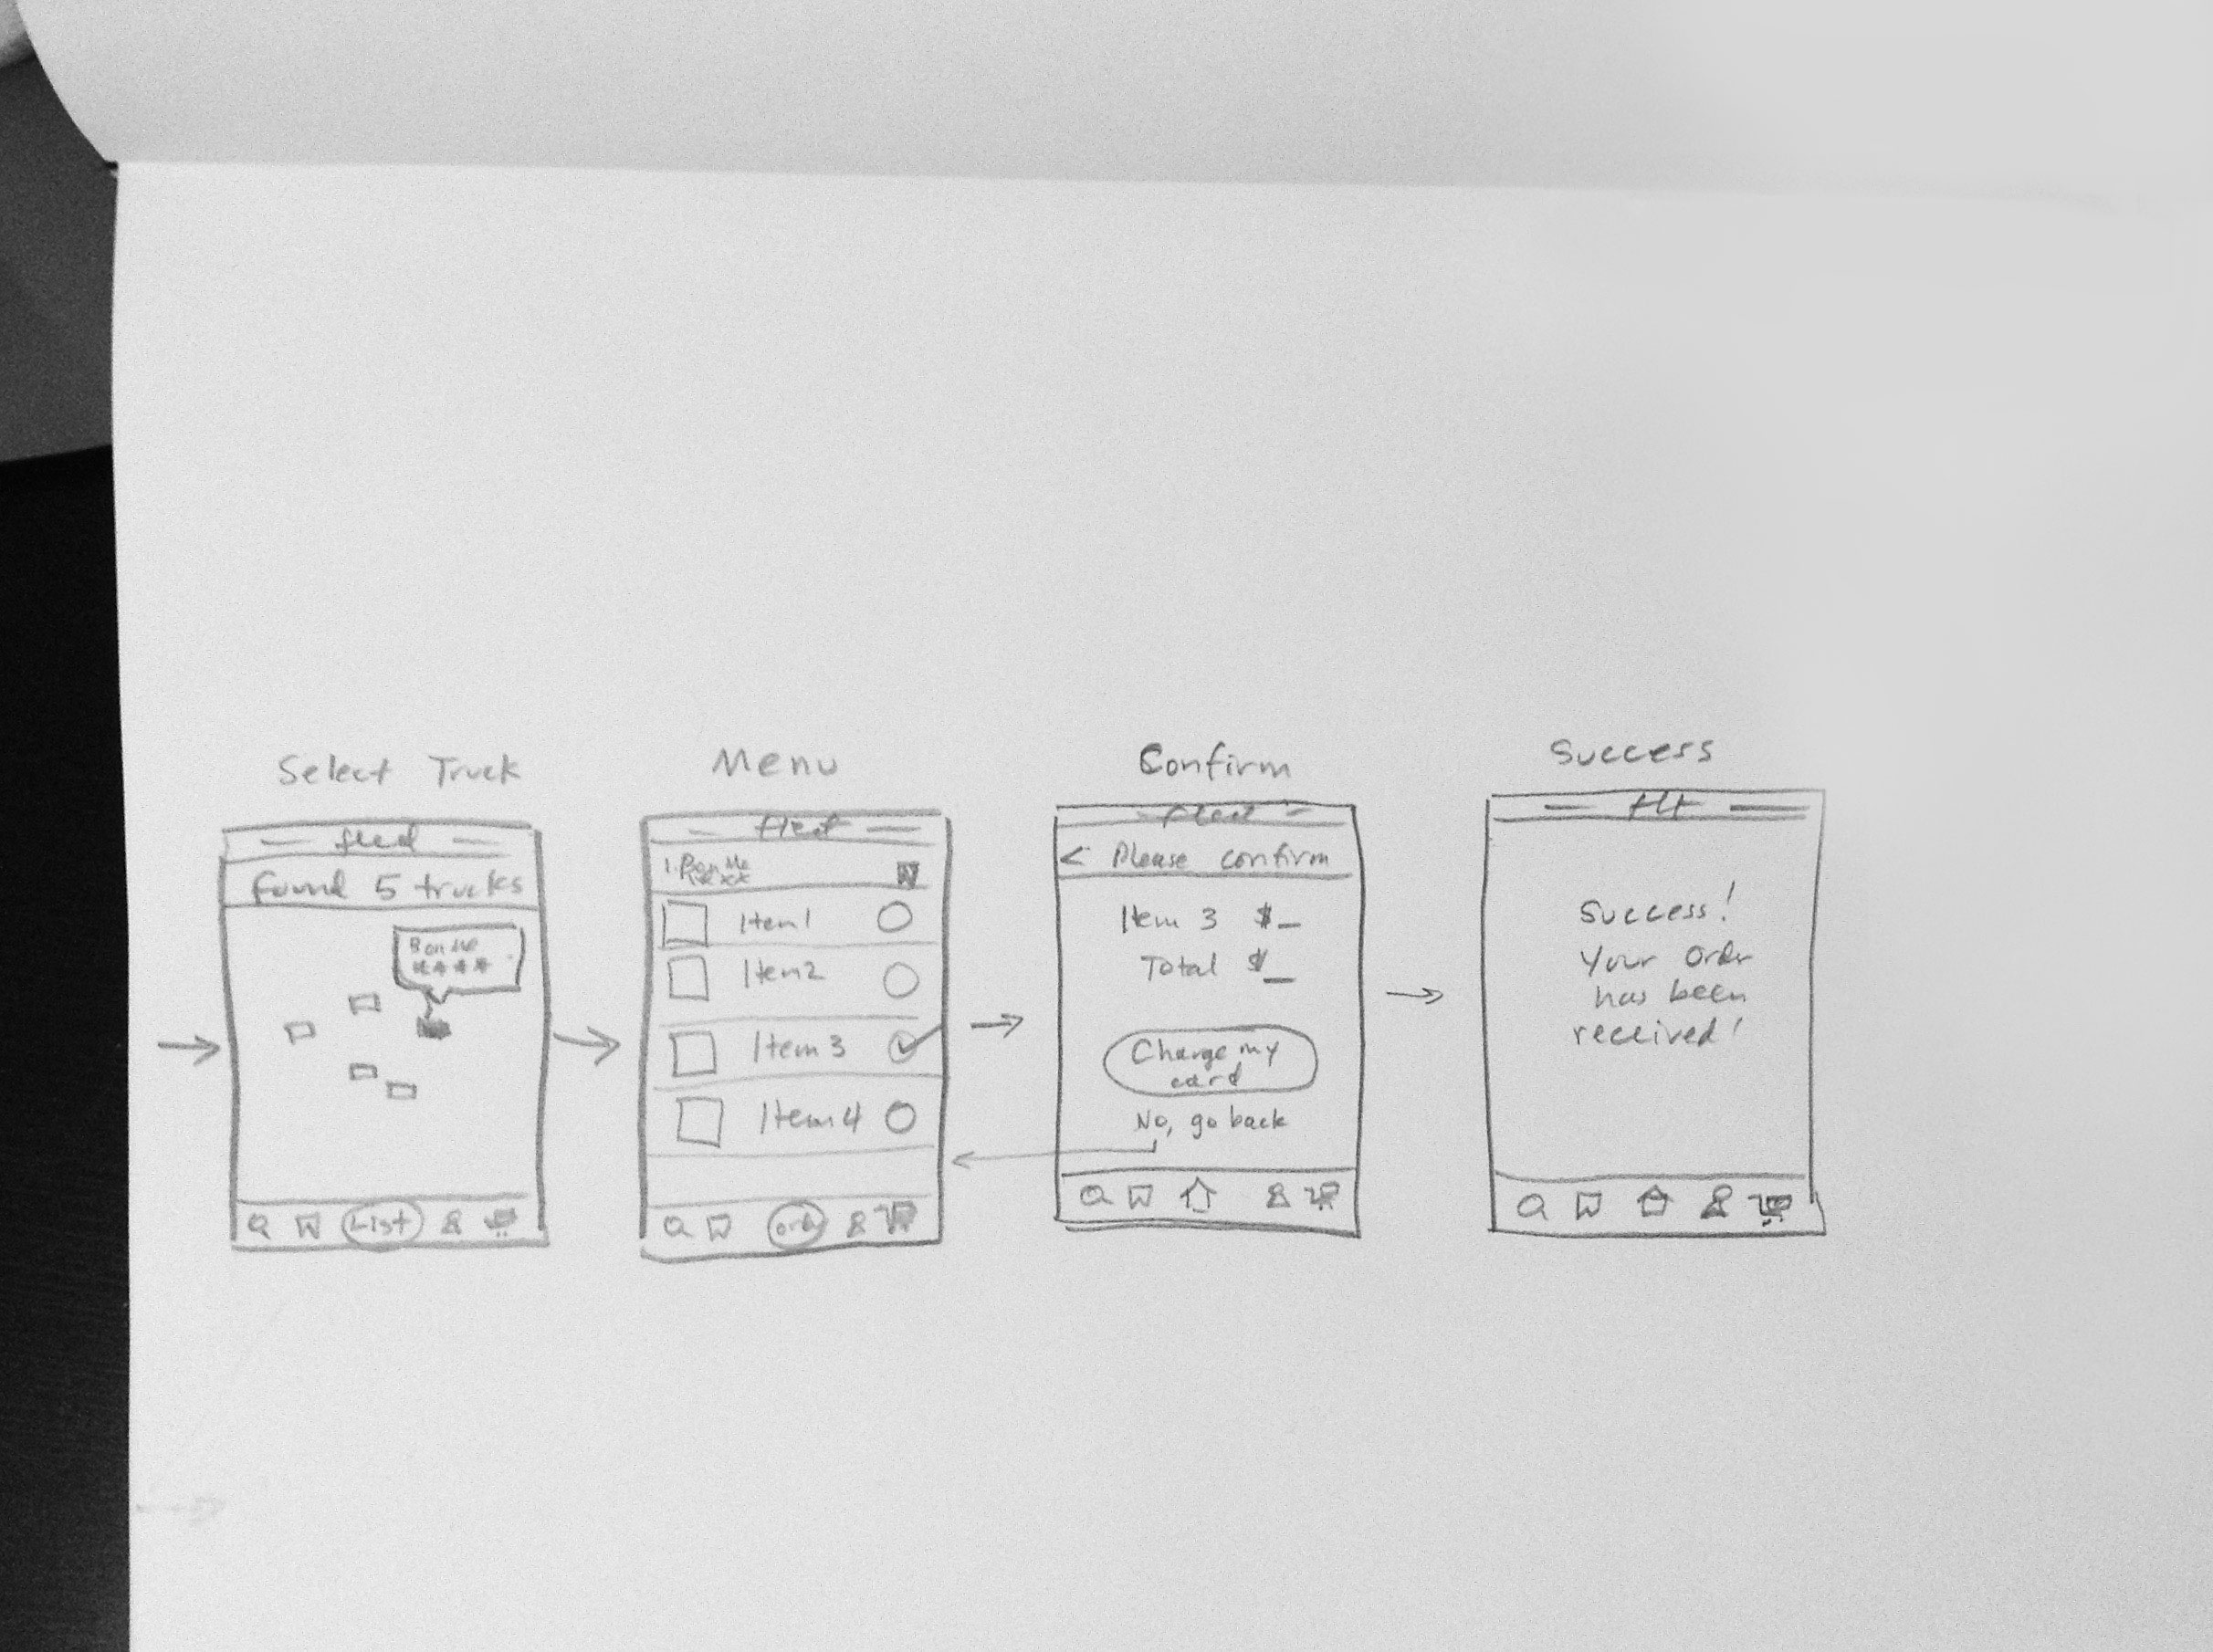 Select Truck
Found 5 trucks
Bon Me
List
Menu
fleet
1. Bon Me
Item 1
Item 2
Item 3
Item 4
Confirm
fleet
< Please confirm
Item 3 $_
Total $_
Charge my
card
No, go back
Success
Success!
Your order
has been
received!